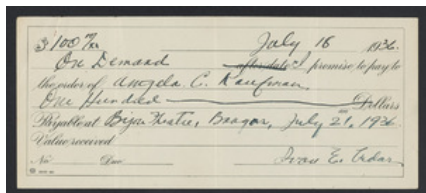 $100 no/xx July 16 1936
On Demand after date I promise to pay to
the order of Angela. C. Kaufman
One Hundred Dollars
Payable at Bijou Theatre, Bangor, July 21, 1936
Value received
No. Due Ivan E.